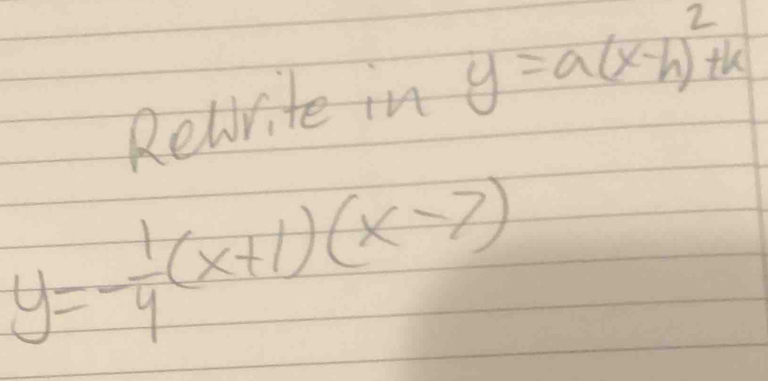 Rewrite in y=a(x-h)²+k
y=-1/4(x+1)(x-7)